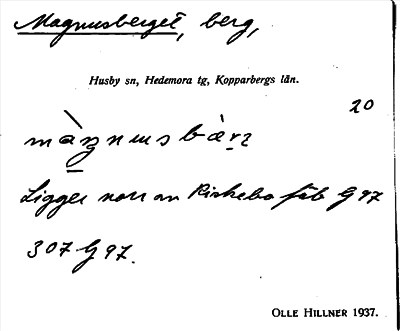 Magnusberget, berg,
Husby sn, Hedemora tg, Kopparbergs län.
20
Ligger norr om fäb G 97
307 G 97.
OLLE HILLNER 1937.